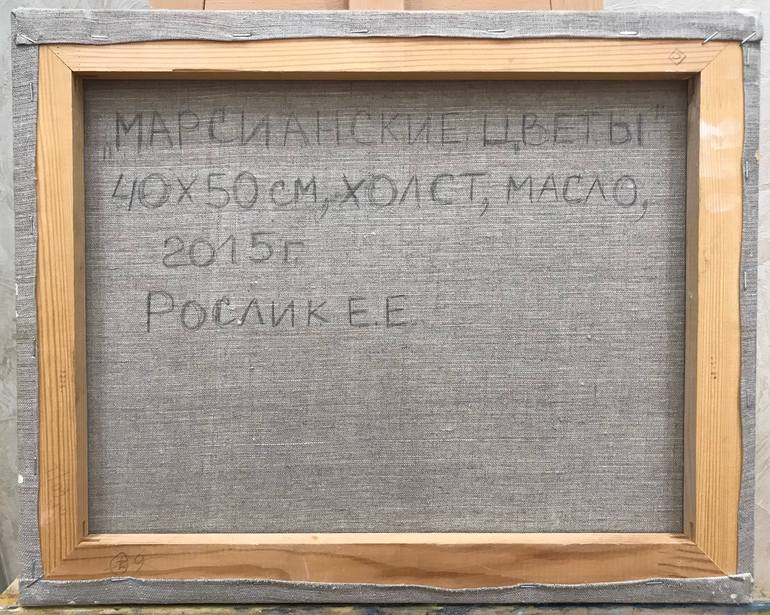 „МАРСИАНСКИЕ ЦВЕТЫ"
40X50 СМ, ХОЛСТ, МАСЛО,
2015 г.
РОСЛИК Е.Е.